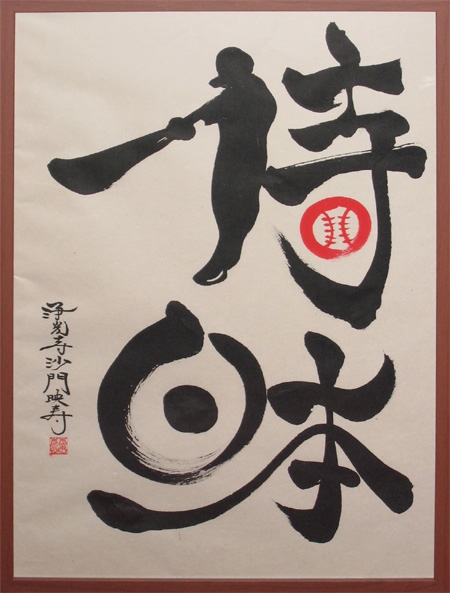 侍
日本
浄光寺沙門映寿